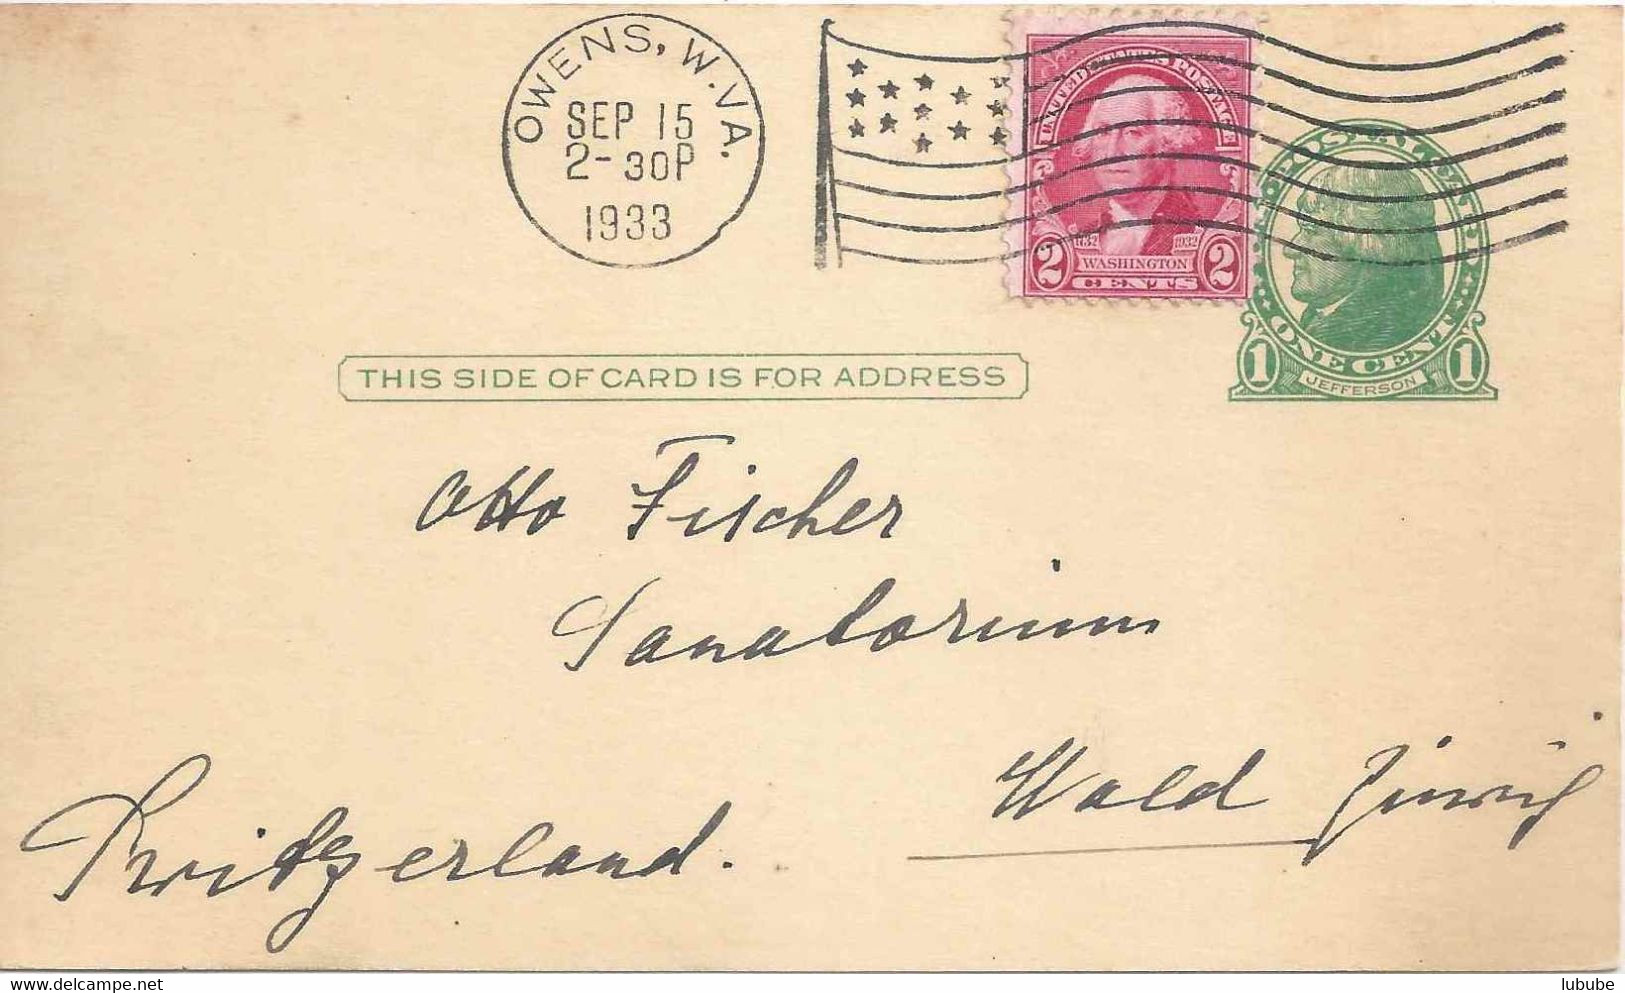 OWENS, W.VA.
SEP 15
2-30P
1933
UNITED STATES POSTAGE
1732 1932
WASHINGTON
2 CENTS 2
POSTAL CARD
1 ONE CENT 1
JEFFERSON
THIS SIDE OF CARD IS FOR ADDRESS
Otto Fischer
Sanatorium
Wald Zürich
Switzerland.
www.delcampe.net
lubube